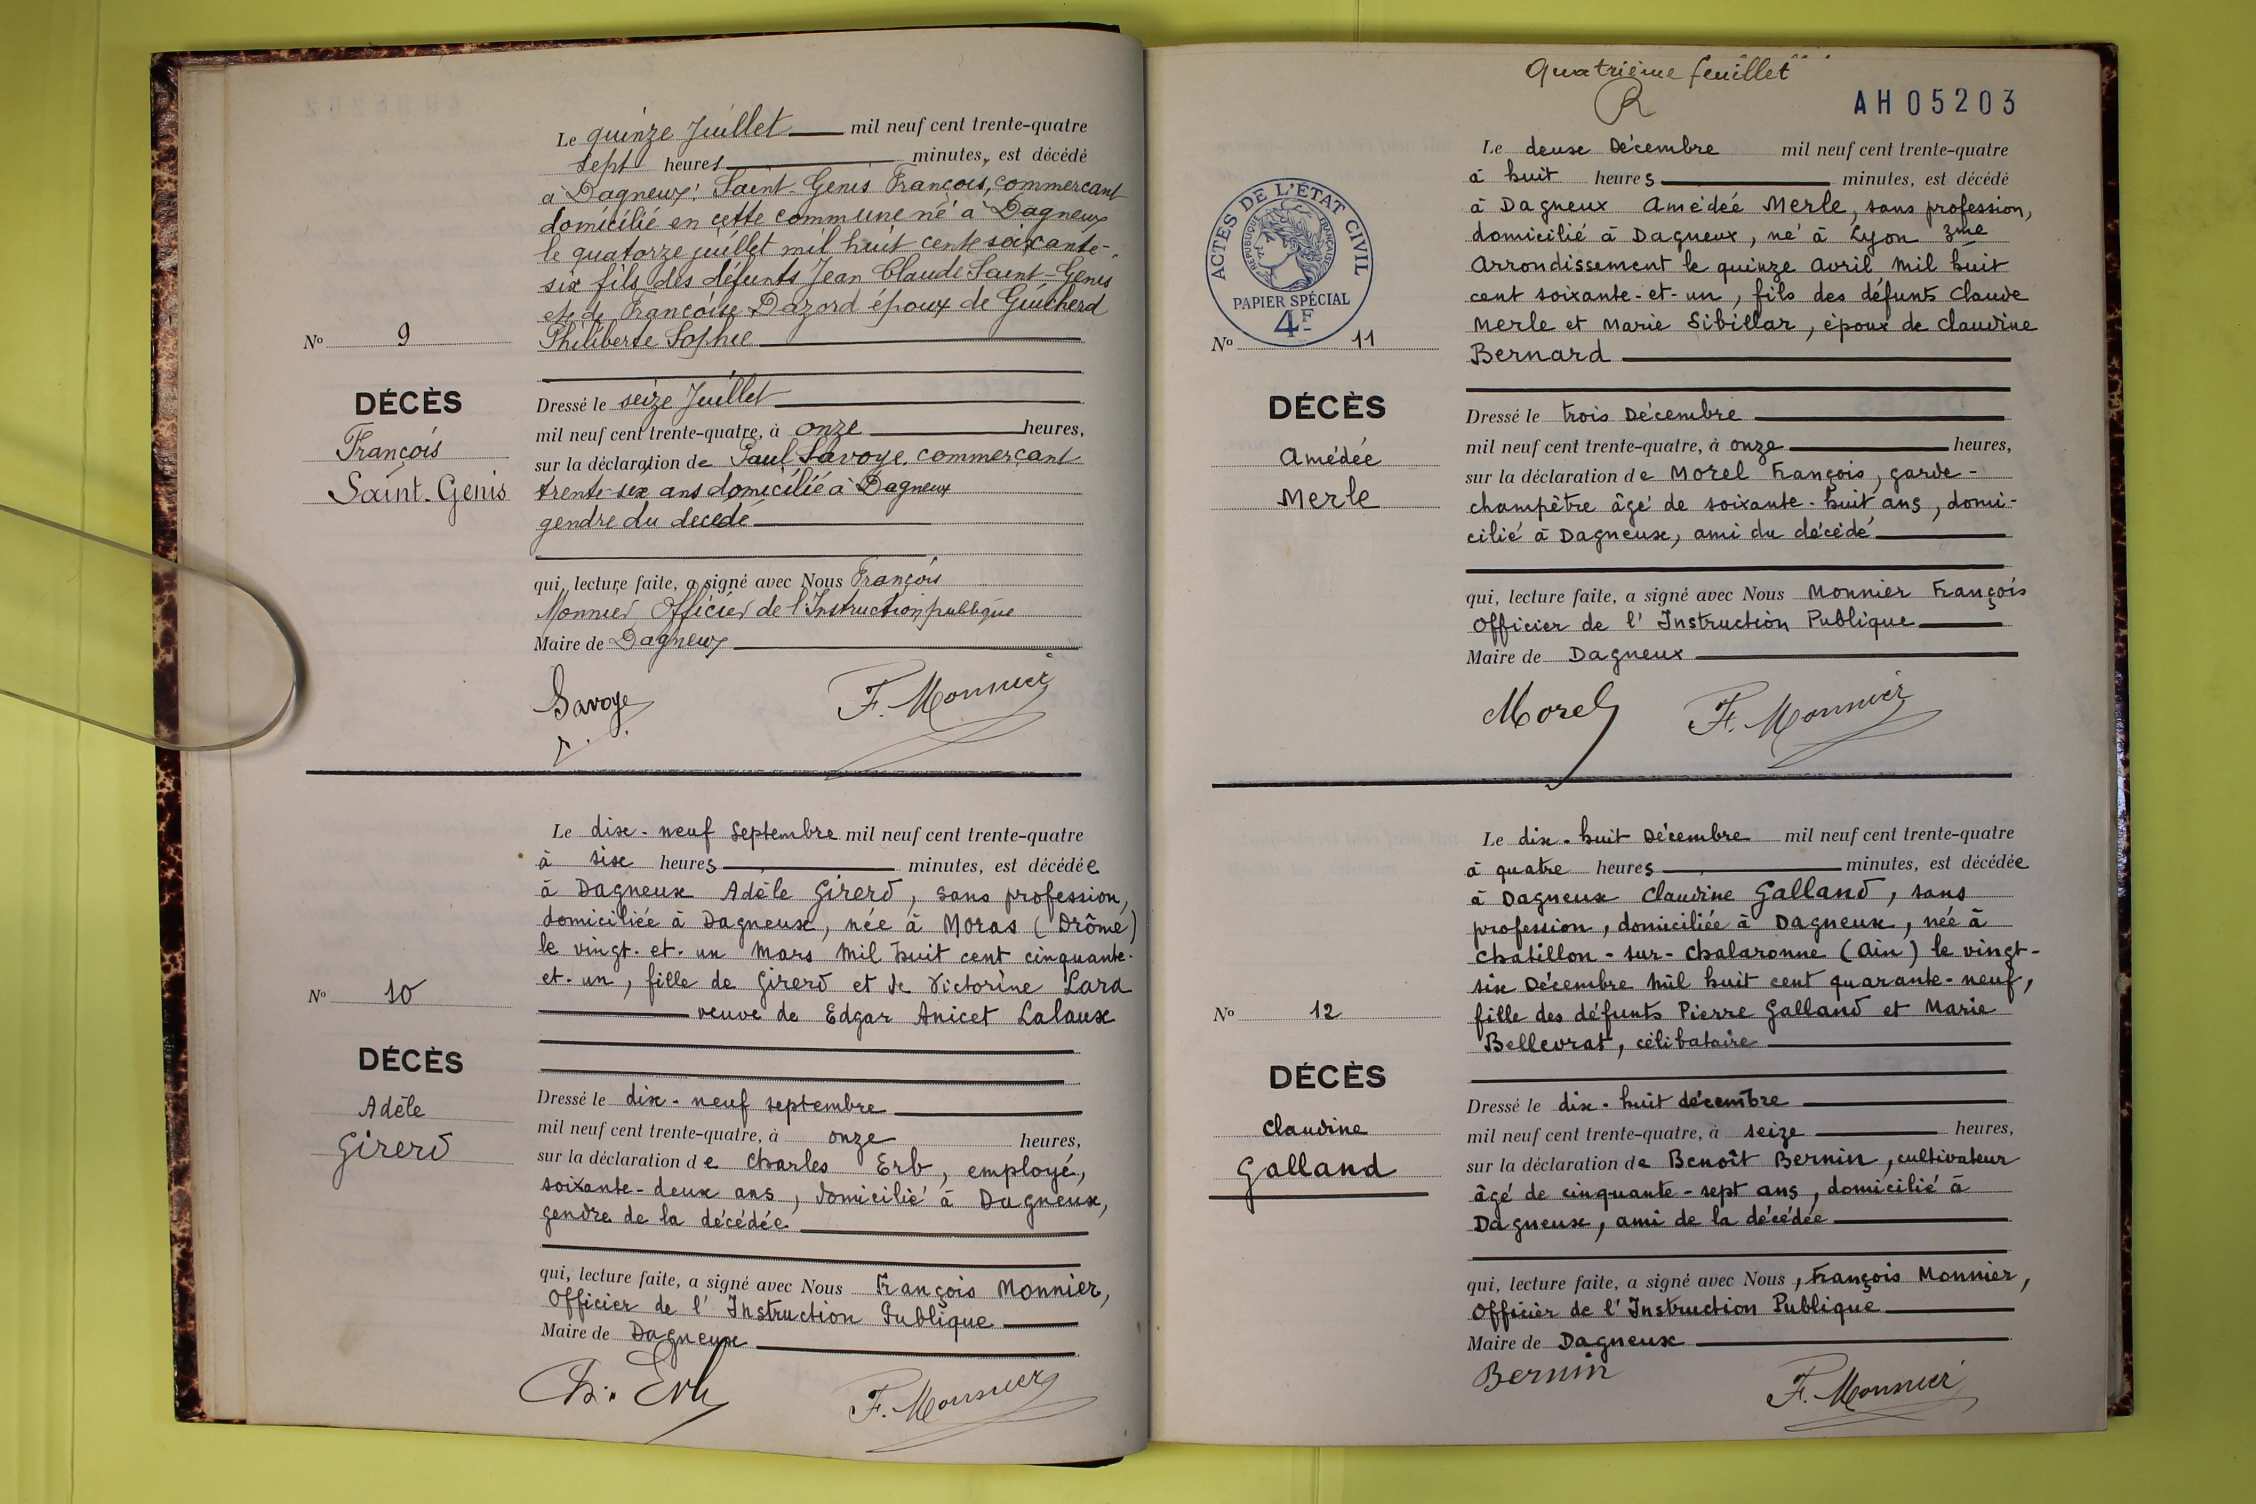 Le quinze Juillet mil neuf cent trente-quatre
sept heures minutes, est décédé
à Dagneux: Saint-Genis François, commerçant
domicilié en cette commune né à Dagneux
le quatorze juillet mil huit cent soixante-
six fils des défunts Jean Claude Saint-Genis
et de Françoise Dazord époux de Guicherd
Philiberte Sophie
No 9
DÉCÈS
François
Saint-Genis
Dressé le seize Juillet
mil neuf cent trente-quatre, à onze heures,
sur la déclaration de Paul Savoye, commerçant
trente-six ans domicilié à Dagneux
gendre du décédé
qui, lecture faite, a signé avec Nous François
Monnier Officier de l'Instruction publique
Maire de Dagneux
Savoye
F. Monnier
Le dix-neuf Septembre mil neuf cent trente-quatre
à six heures minutes, est décédée
à Dagneux Adèle Girerd, sans profession,
domiciliée à Dagneux, née à Moras (Drôme)
le vingt-et-un Mars mil huit cent cinquante-
et-un, fille de Girerd et de Victorine Lara
veuve de Edgar Anicet Lalaux
No 10
DÉCÈS
Adèle
Girerd
Dressé le dix-neuf septembre
mil neuf cent trente-quatre, à onze heures,
sur la déclaration de Charles Erb, employé,
soixante-deux ans, domicilié à Dagneux,
gendre de la décédée
qui, lecture faite, a signé avec Nous François Monnier,
Officier de l'Instruction Publique
Maire de Dagneux
Ch. Erb
F. Monnier
Quatrième feuillet
AH05203
Le deux Décembre mil neuf cent trente-quatre
à huit heures minutes, est décédé
à Dagneux Amédée Merle, sans profession,
domicilié à Dagneux, né à Lyon 3me
Arrondissement le quinze Avril Mil huit
cent soixante-et-un, fils des défunts Claude
Merle et Marie Sibillar, époux de Claudine
Bernard
ACTES DE L'ÉTAT CIVIL
RÉPUBLIQUE FRANÇAISE
PAPIER SPÉCIAL
4F
No 11
DÉCÈS
Amédée
Merle
Dressé le trois Décembre
mil neuf cent trente-quatre, à onze heures,
sur la déclaration de Morel François, garde-
champêtre âgé de soixante-huit ans, domi-
cilié à Dagneux, ami du décédé
qui, lecture faite, a signé avec Nous Monnier François
Officier de l'Instruction Publique
Maire de Dagneux
Morel
F. Monnier
Le dix-huit Décembre mil neuf cent trente-quatre
à quatre heures minutes, est décédée
à Dagneux Claudine Galland, sans
profession, domiciliée à Dagneux, née à
Chatillon-sur-Chalaronne (Ain) le vingt-
six Décembre Mil huit cent quarante-neuf,
fille des défunts Pierre Galland et Marie
Bellevrat, célibataire
No 12
DÉCÈS
Claudine
Galland
Dressé le dix-huit décembre
mil neuf cent trente-quatre, à seize heures,
sur la déclaration de Benoît Bernin, cultivateur
âgé de cinquante-sept ans, domicilié à
Dagneux, ami de la décédée
qui, lecture faite, a signé avec Nous, François Monnier,
Officier de l'Instruction Publique
Maire de Dagneux
Bernin
F. Monnier